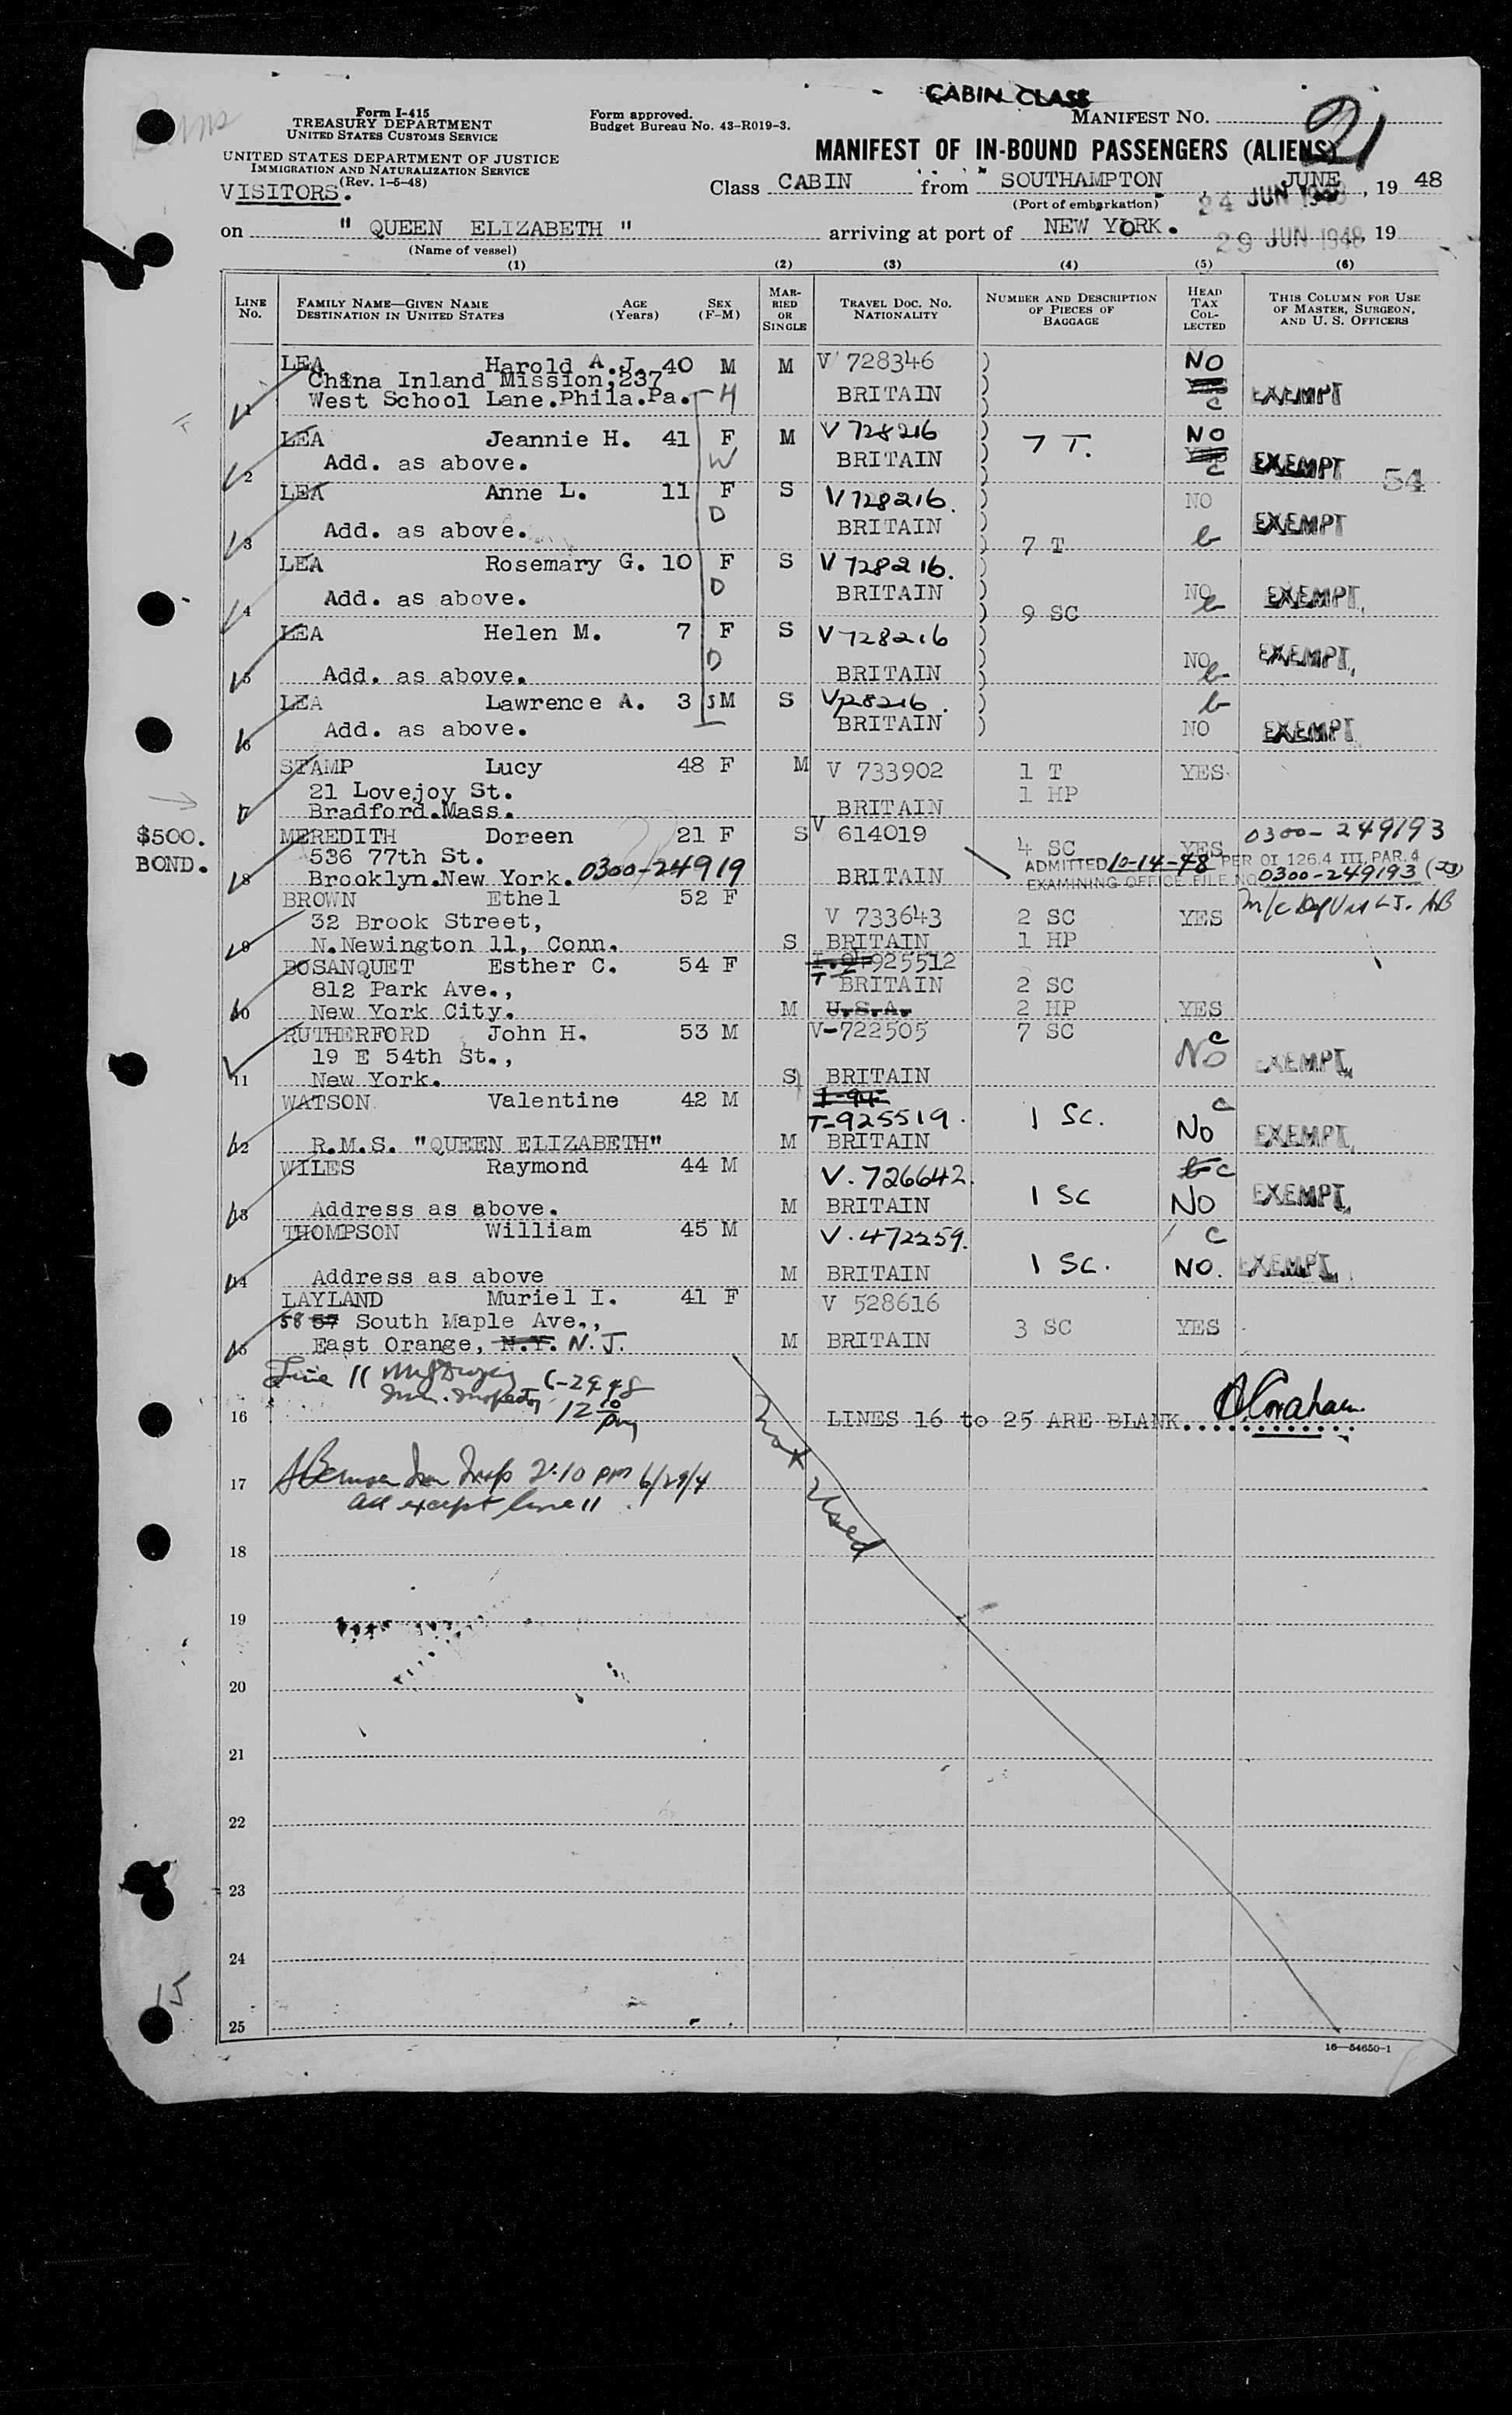 CABIN CLASS
Form I-415
TREASURY DEPARTMENT
UNITED STATES CUSTOMS SERVICE
Form approved.
Budget Bureau No. 43-R019-3.
MANIFEST No. 21
UNITED STATES DEPARTMENT OF JUSTICE
IMMIGRATION AND NATURALIZATION SERVICE
(Rev. 1-5-48)
MANIFEST OF IN-BOUND PASSENGERS (ALIENS)
VISITORS.
Class CABIN from SOUTHAMPTON, JUNE, 19 48
(Port of embarkation) 24 JUN 1948
on " QUEEN ELIZABETH " arriving at port of NEW YORK. 29 JUN 1948, 19
(Name of vessel)
(1) (2) (3) (4) (5) (6)
LINE No. FAMILY NAME—GIVEN NAME DESTINATION IN UNITED STATES AGE (Years) SEX (F-M) MARRIED OR SINGLE TRAVEL DOC. NO. NATIONALITY NUMBER AND DESCRIPTION OF PIECES OF BAGGAGE HEAD TAX COLLECTED THIS COLUMN FOR USE OF MASTER, SURGEON, AND U. S. OFFICERS
LEA Harold A.J. 40 M M V 728346 NO
China Inland Mission,237
1 West School Lane.Phila.Pa. H BRITAIN c EXEMPT
LEA Jeannie H. 41 F M V 728216 7 T. NO
2 Add. as above. W BRITAIN c EXEMPT 54
LEA Anne L. 11 F S V 728216. NO
3 Add. as above. D BRITAIN 7 T b EXEMPT
LEA Rosemary G. 10 F S V 728216.
4 Add. as above. D BRITAIN 9 SC NO b EXEMPT
LEA Helen M. 7 F S V 728216
5 Add. as above. D BRITAIN NO b EXEMPT
LEA Lawrence A. 3 S M S V728216. b
6 Add. as above. BRITAIN NO EXEMPT
STAMP Lucy 48 F M V 733902 1 T YES
21 Lovejoy St. 1 HP
7 Bradford.Mass. BRITAIN
$500. MEREDITH Doreen 21 F S V 614019 4 SC YES 0300-249193
BOND. 536 77th St. ADMITTED 10-14-48 PER OI 126.4 III PAR.4
8 Brooklyn.New York. 0300-24919 BRITAIN EXAMINING OFFICE FILE NO. 0300-249193
BROWN Ethel 52 F
32 Brook Street, V 733643 2 SC YES
9 N.Newington 11, Conn. S BRITAIN 1 HP
BOSANQUET Esther C. 54 F T 925512
812 Park Ave., BRITAIN 2 SC
10 New York City. M U.S.A. 2 HP YES
RUTHERFORD John H. 53 M V-722505 7 SC c
19 E 54th St., NO EXEMPT
11 New York. S BRITAIN
WATSON Valentine 42 M I-94 c
T-925519. 1 SC. NO EXEMPT
12 R.M.S. "QUEEN ELIZABETH" M BRITAIN
WILES Raymond 44 M V. 726642. c
13 Address as above. M BRITAIN 1 SC NO EXEMPT
THOMPSON William 45 M V. 472259. c
14 Address as above M BRITAIN 1 SC. NO. EXEMPT
LAYLAND Muriel I. 41 F V 528616
58 57 South Maple Ave., 3 SC YES
15 East Orange, N.Y. N.J. M BRITAIN
Line 11 6-29 48
Imm. Inspector 12 10 pm
16 LINES 16 to 25 ARE BLANK.
Not Used
17 Imm Insp 2:10 PM 6/29/4
all except line 11
18
19
20
21
22
23
24
25
15
16—54650-1